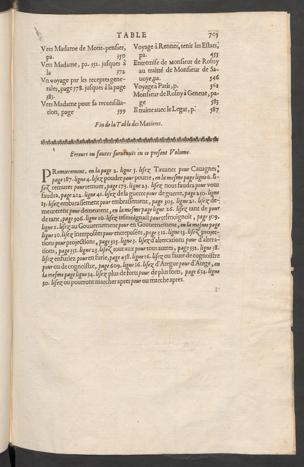 TABLE 703
Vers Madame de Mont-pensier,
pa. 350
Vers Madame, pa. 352. jusques à
la 372
Un voyage par les receptes gene-
rales, page 378. jusques à la page
383.
Vers Madame pour sa reconcilia-
tion, page 399
Voyage à Rennes, tenir les Estats,
pa. 453
Entremise de Monsieur de Rosny
au traité de Monsieur de Sa-
uoye, pa. 546
Voyage à Paris, p. 362
Monsieur de Rosny à Geneue, pa-
ge 385
Et traite auec le Legat, p. 387
Fin de la Table des Matieres.
Erreurs ou fautes suruenuës en ce present Volume.
PRemierement, en la page 4. ligne 5. lisez Tauanes pour Cauagnes,
page 187. ligne 4. lisez poudre pour poutre, en la mesme page ligne 6. li-
sez remuent pour reniuent, page 173. ligne 23. lisez nous faudra pour vous
faudra, page 224. ligne 21. lisez de la guerre pour de guerre, page 240. ligne
13. lisez embarassement pour embrasement, page 303. ligne 21. lisez de-
meurerent pour demeurent, en la mesme page ligne 26. lisez tant de pour
de tant, page 306. ligne 10. lisez pour tesmoignoit, page 309.
ligne 5. lisez au Gouuernement pour en Gouuernement, en la mesme page
ligne 20. lisez interposées pour entreposées, page 312. ligne 13. lisez projec-
tions pour projections, page 313. ligne 3. lisez alterations pour d'altera-
tions, page 315. ligne 27. lisez jour aux tous pour aux tous, page 438. ligne 18.
lisez enfuries pour en furie, page 458. ligne 16. lisez ou faute de cognoistre
pour ou de cognoistre, page 609. ligne 16. lisez d'Aregue pour d'Arege, en
la mesme page ligne 34. lisez plus de forts pour de plus forts, page 624. ligne
30. lisez ou pourront marcher apres pour ou marche apres.